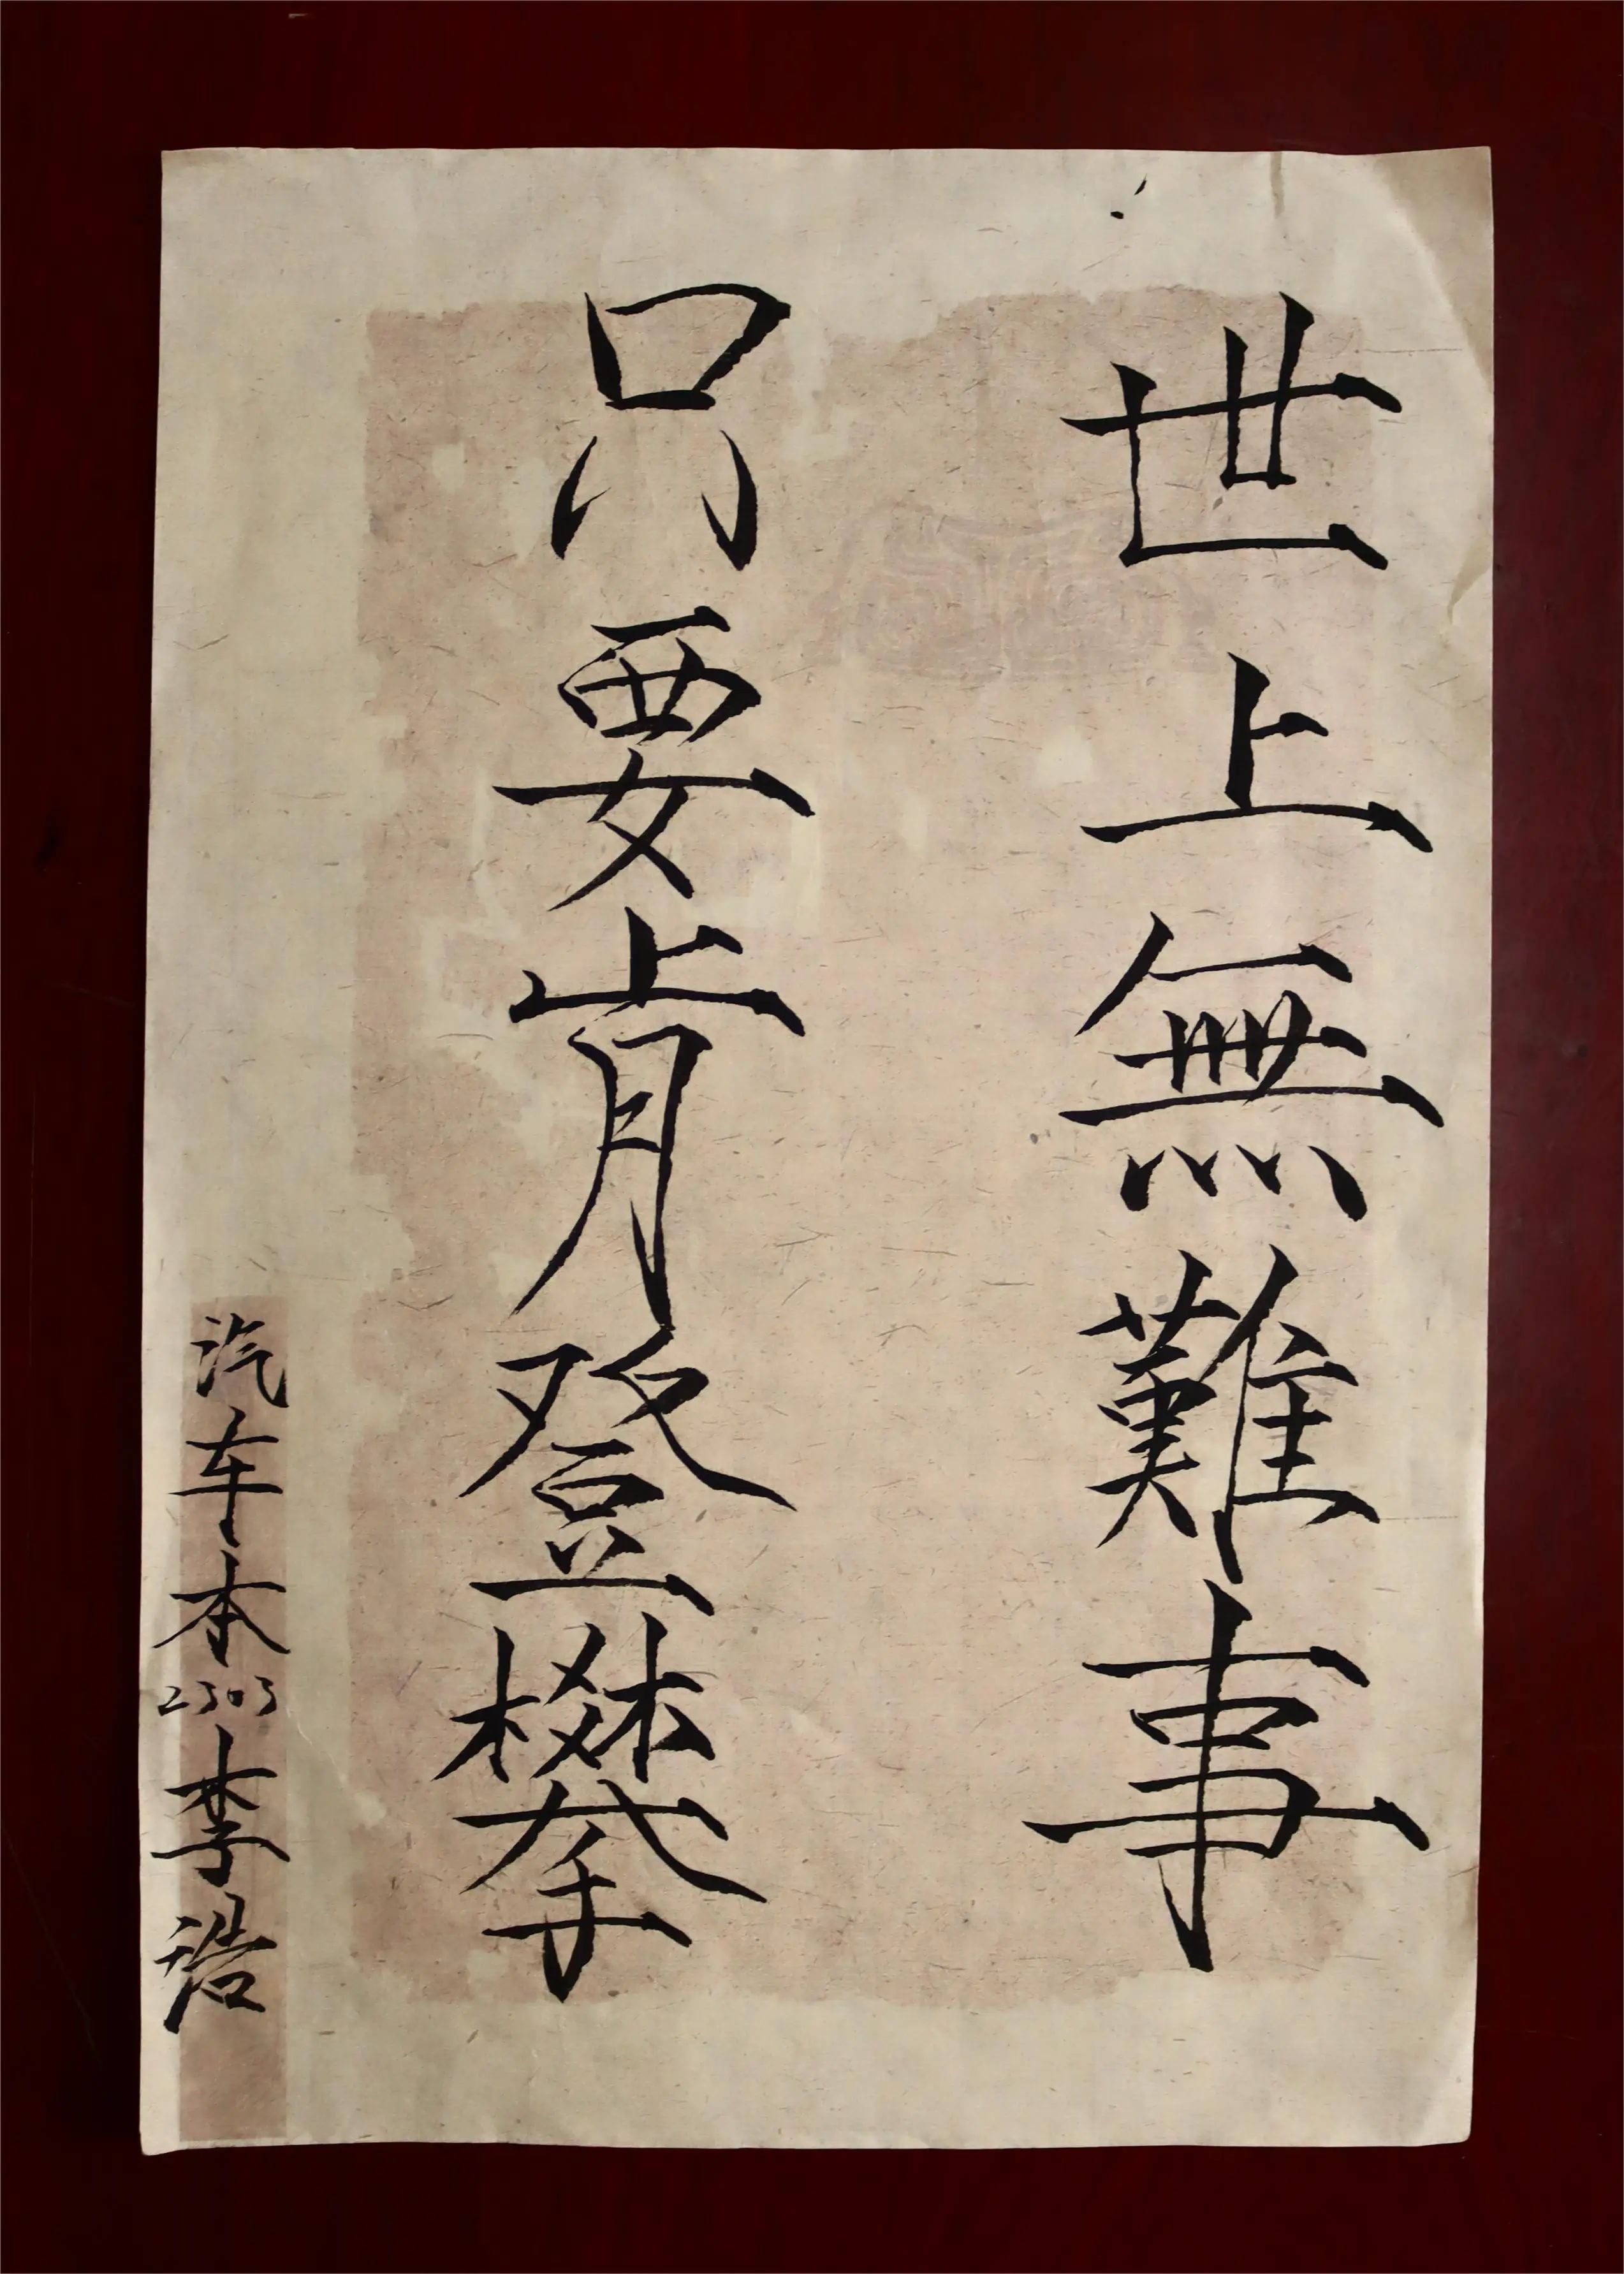 世上無難事
只要肯登攀
汽车本2303李浩